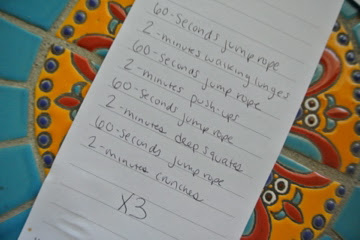 60-Seconds jump rope
2-minutes walking lunges
60-Seconds jump rope
2-minutes push-ups
60-Seconds jump rope
2-minutes deep squats
60-Seconds jump rope
2-minutes crunches
X3